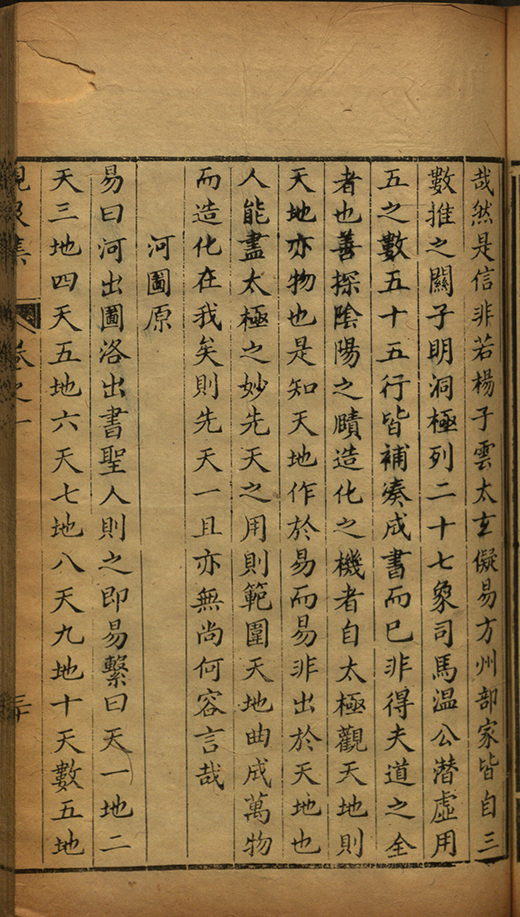 哉然是信非若楊子雲太玄儗易方州部家皆自三
數推之關子明洞極列二十七象司馬温公潛虛用
五之數五十五行皆補湊成書而已非得夫道之全
者也善探陰陽之賾造化之機者自太極觀天地則
天地亦物也是知天地作於易而易非出於天地也
人能盡太極之妙先天之用則範圍天地曲成萬物
而造化在我矣則先天一且亦無尚何容言哉
河圖原
易曰河出圖洛出書聖人則之即易繫曰天一地二
天三地四天五地六天七地八天九地十天數五地
峴泉集 卷之一 三十